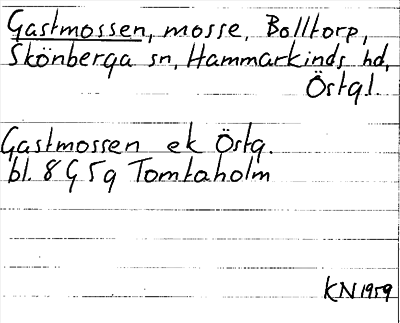 Gastmossen, mosse, Bolltorp,
Skönberga sn, Hammarkinds hd,
Östgl.
Gastmossen ek Östg.
bl. 8G5g Tomtaholm
KN 1959